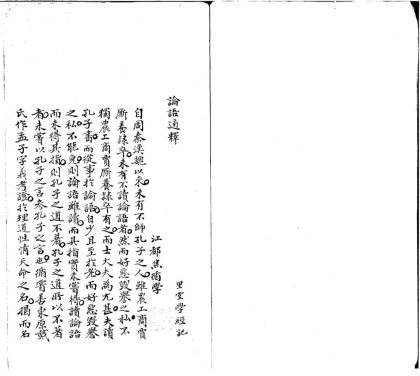 論語通釋
里堂學經記
江都焦循學
自周秦漢魏以來未有不師孔子之人雖農工商賈
廝養隸卒未有不讀論語者然而好惡毀譽之私不
獨農工商賈廝養隸卒有之而士大夫為尤甚夫讀
孔子書而從事於論語自少且至於老而好惡毀譽
之私不能免則論語雖讀而其指實未嘗得讀論語
而未得其指則孔子之道不著孔子之道所以不著
者未嘗以孔子之言參孔子之言也循嘗善東原戴
氏作孟子字義考證於理道性情天命之名揭而名